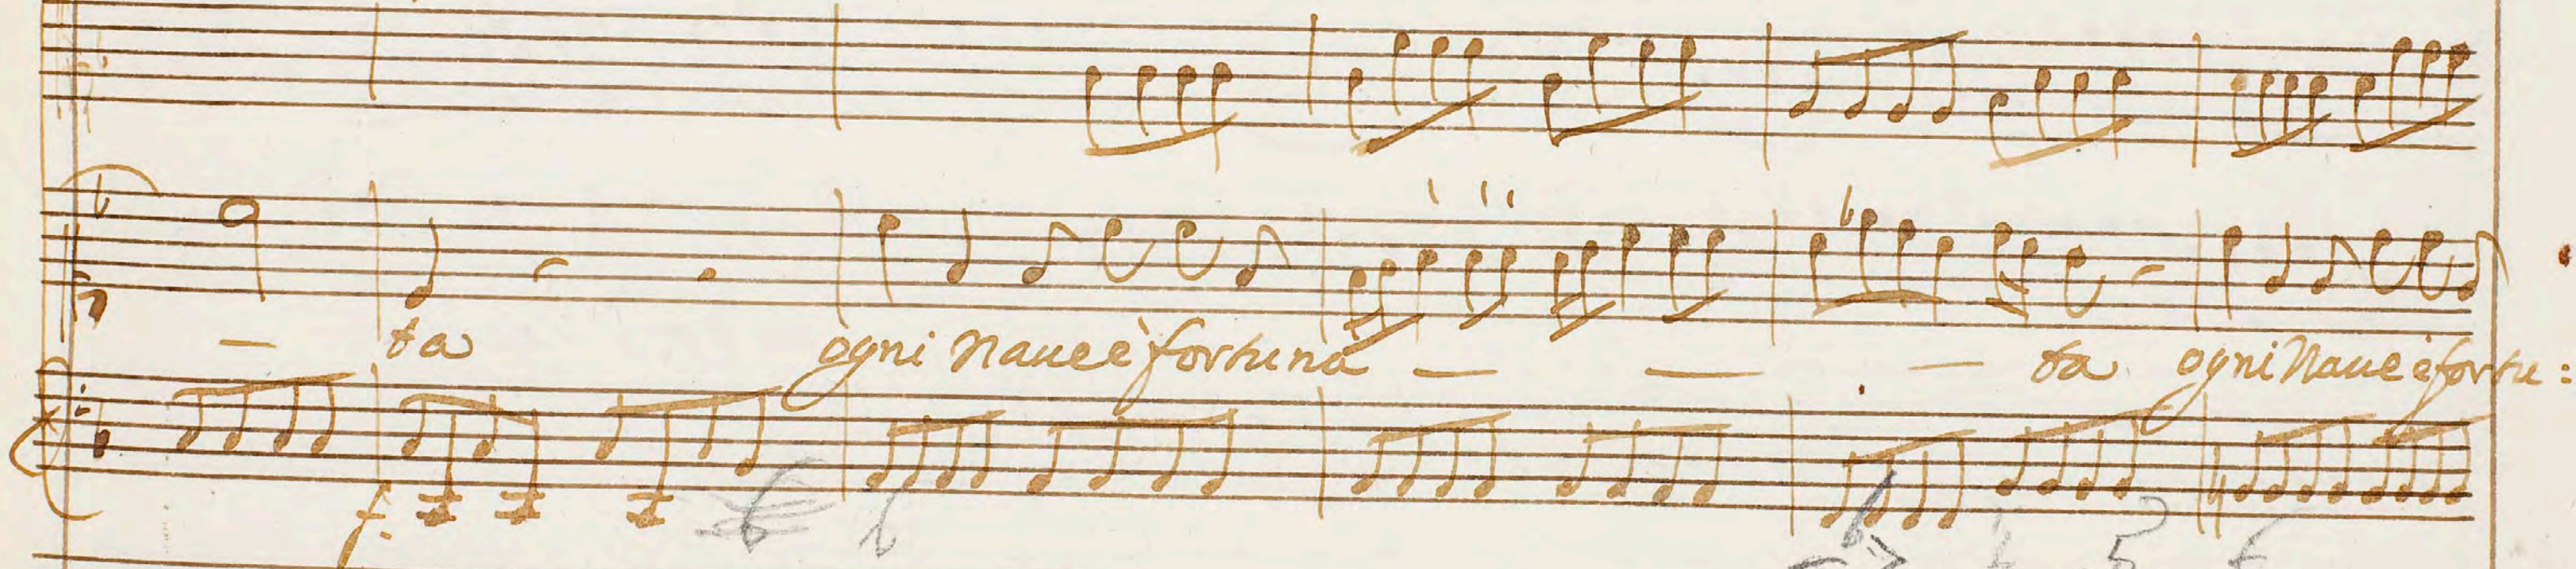 — ta ogni Naue è fortuna — — — ta ogni Naue è fortu:
f.
b 6 5 6